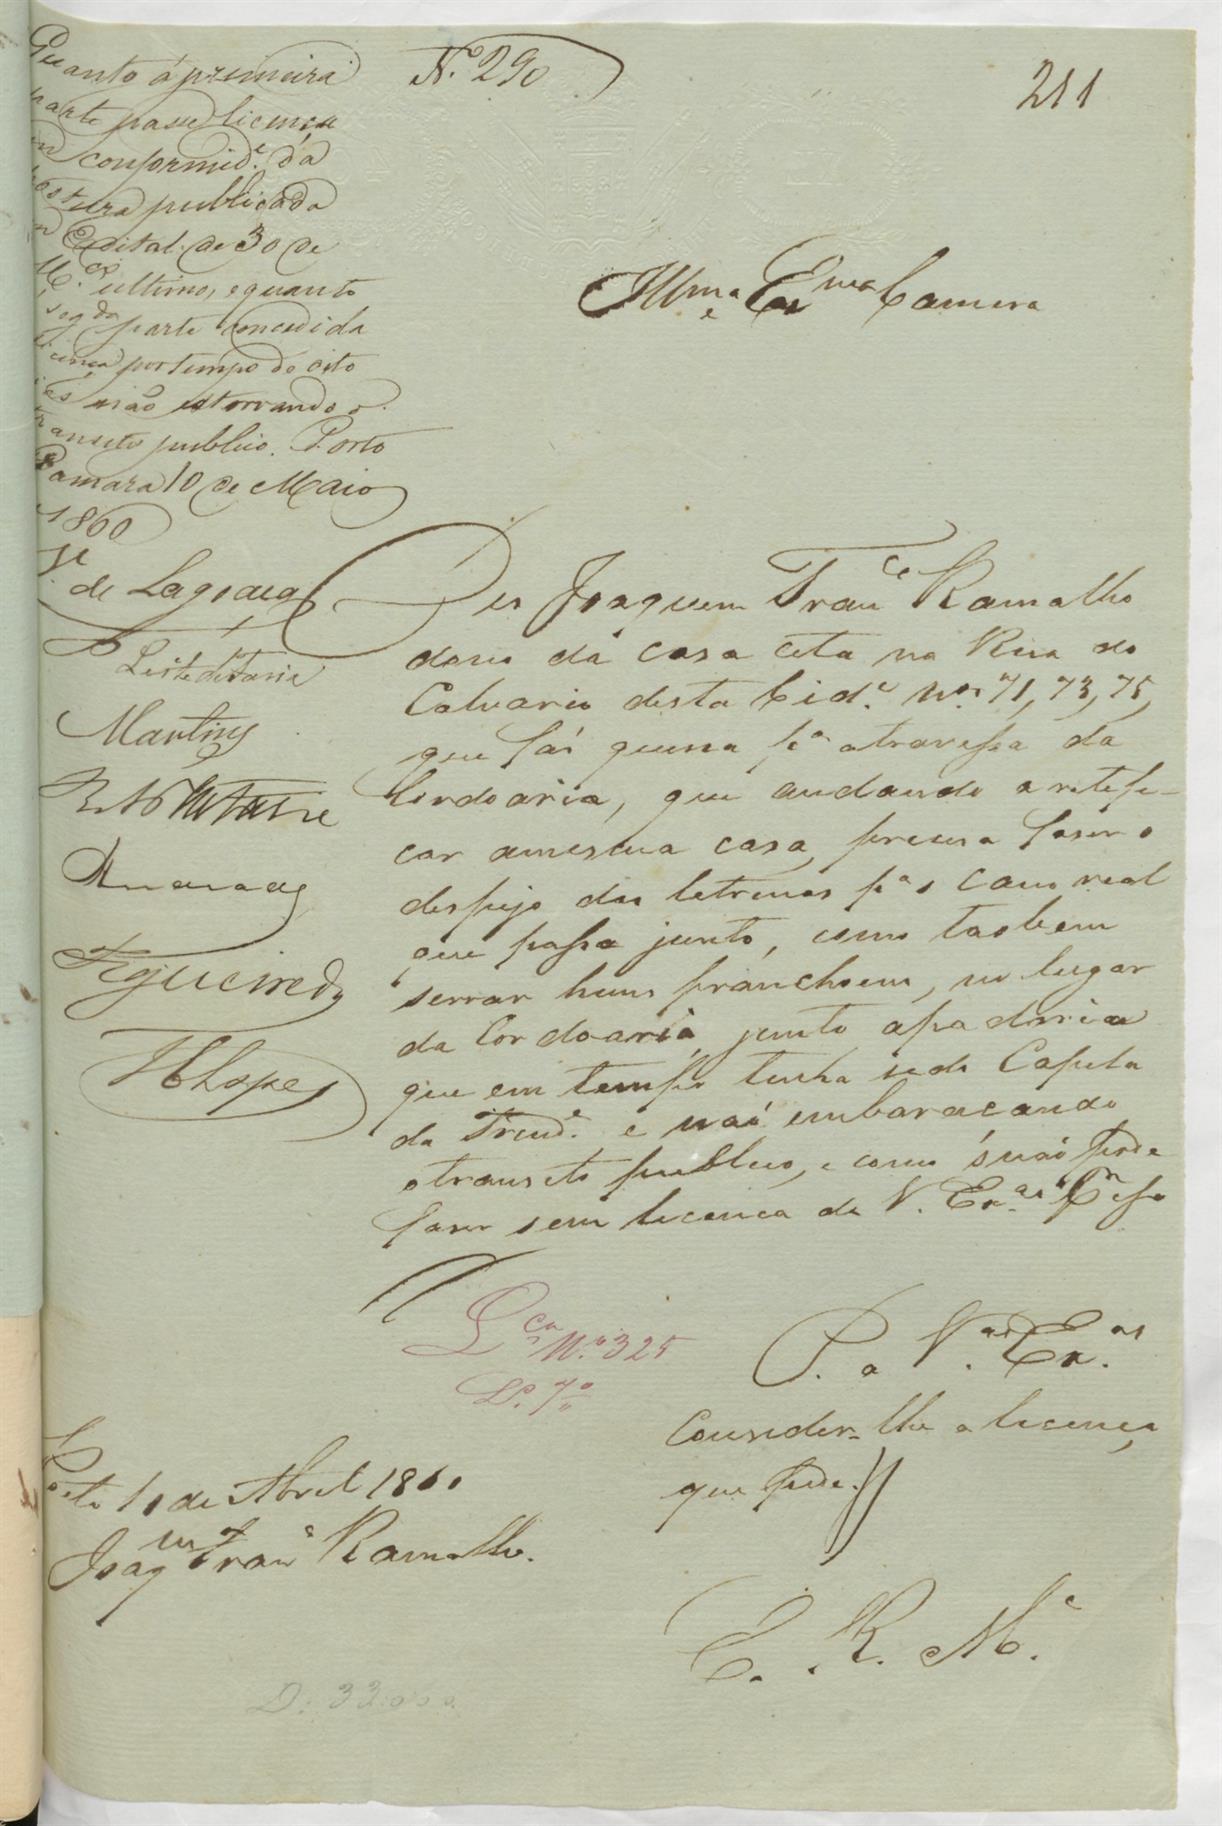 N.º 290
211
Quanto á primeira
parte passe licença
em conformid.e da
postura publicada
em Edital de 30 de
M.ço ultimo, e quanto
á seg.da parte concedida
licença por tempo de oito
dias não estorvando o
transito publico. Porto
Camara 10 de Maio
1860
V.e de Lagoaça
Leite de Faria
Martins
Andrade
Figueiredo
Lopes
Illma e Exma Camera
Dis Joaquem Franco Ramalho
dono da casa cita na Rua do
Calvario desta Cid.e Nos 71, 73, 75,
que fás quina pa atravessa da
Cordoaria, que andando aretefi-
car amesma casa, percisa faser o
despejo das letrenas pa o cano real
que passa junto, como taobem
serrar huns pranchoens, no lugar
da Cordoaria, junto apadaria
que em tempo tenha sido Capela
da Trend.e e naó embaracando
otranseto publico, e como ó naó pode
faser sem licenca de V. Ex.as
P. a V.as Ex.as
Conseder-lhe a licença
que pede.
L.ca N.o 325
L.o 7.o
Porto 10 de Abril 1860
Joaqm Franco Ramalho.
E. R. M.e
D: 33:000